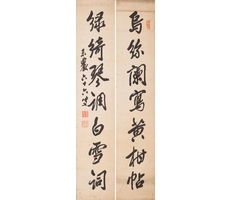 烏絲闌寫黃柑帖
綠綺琴調白雪詞